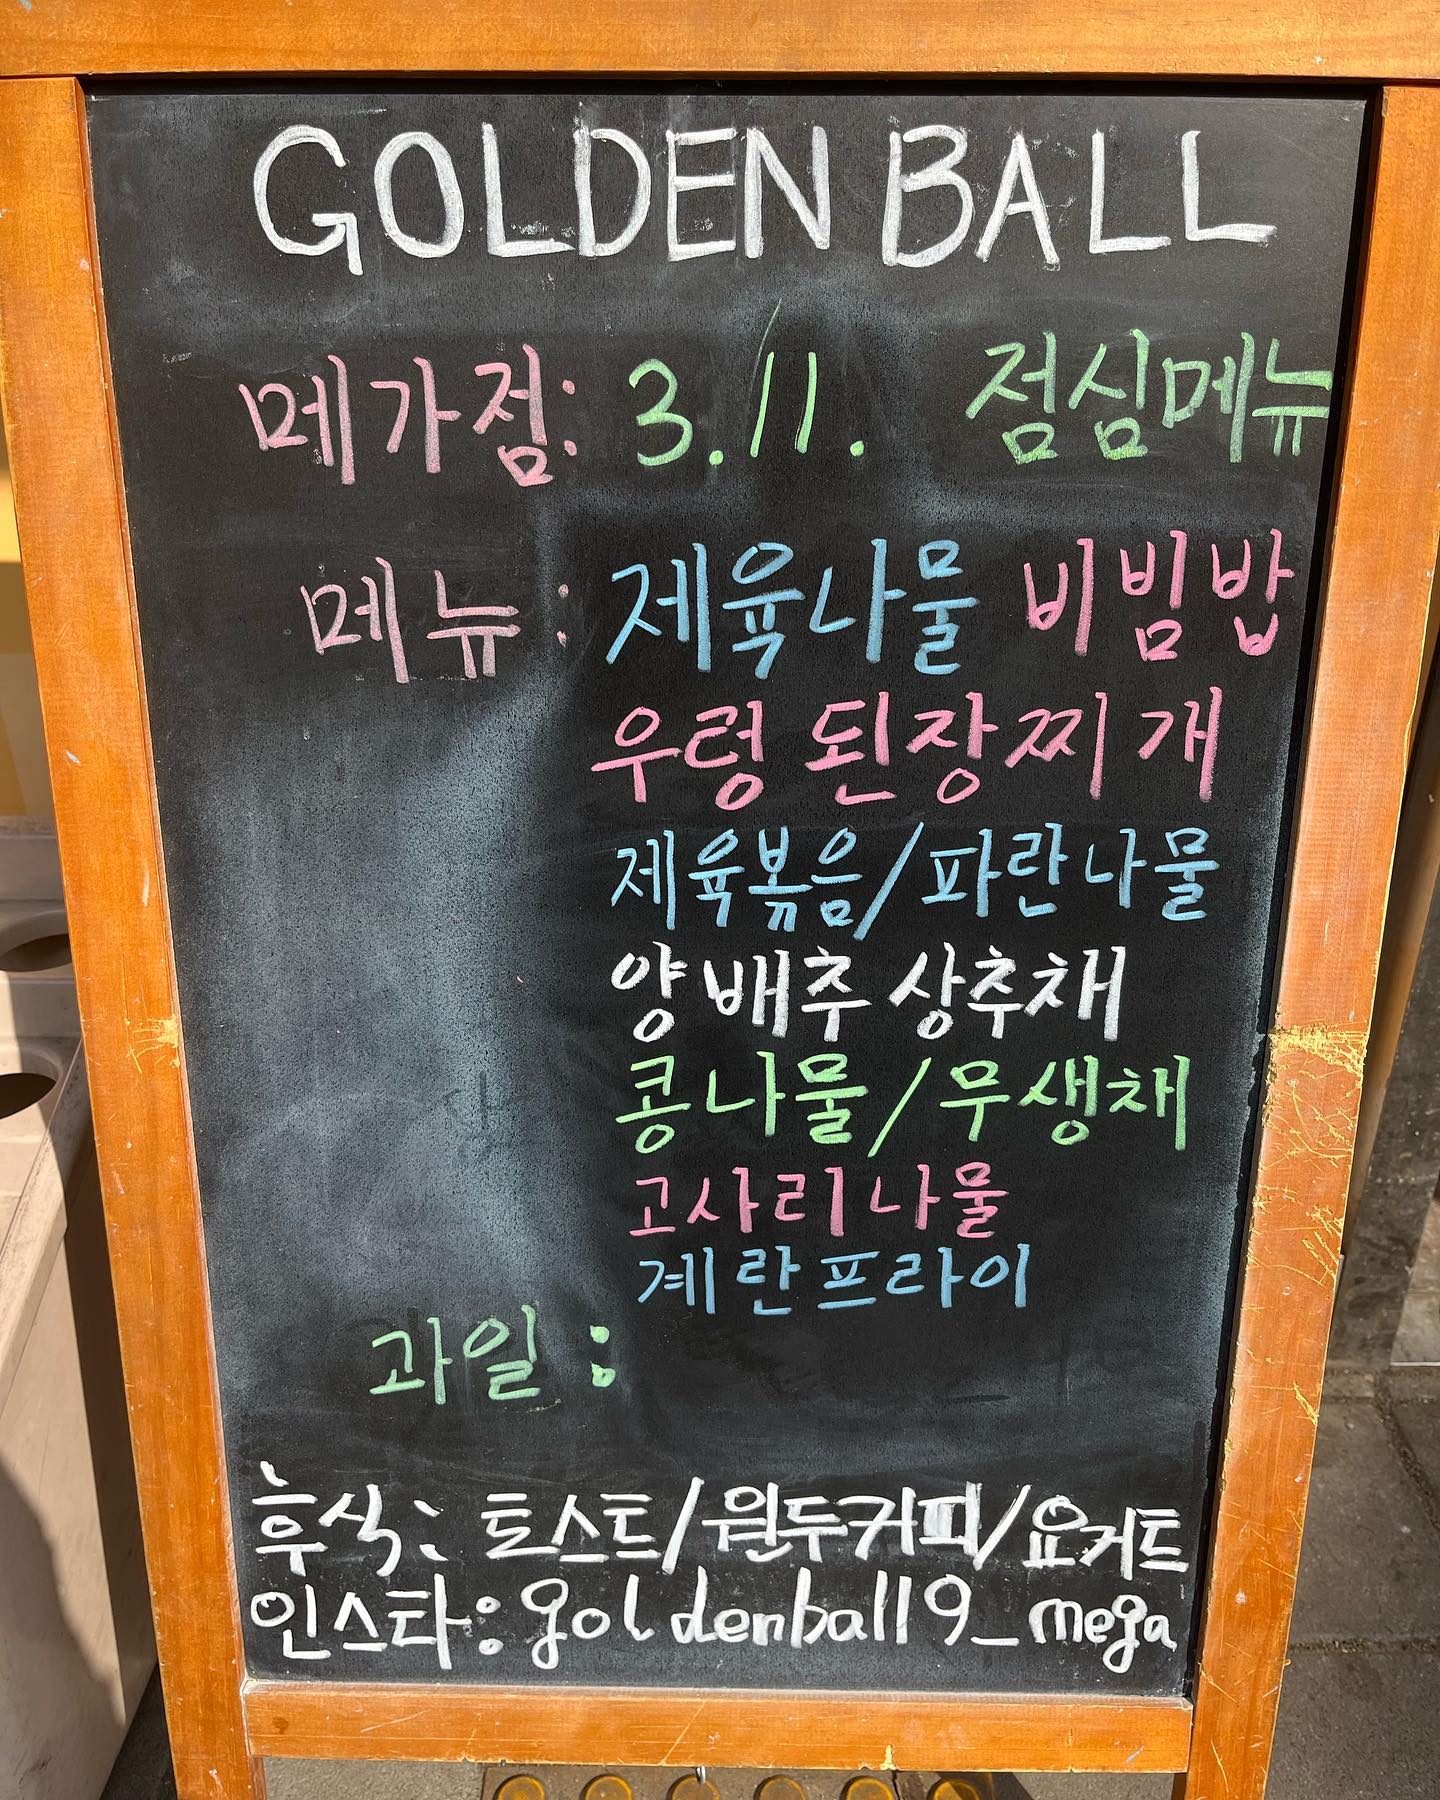 GOLDEN BALL
메가점: 3.11. 점심메뉴
메뉴: 제육나물 비빔밥
우렁 된장찌개
제육볶음/파란나물
양배추 상추채
콩나물/무생채
고사리나물
계란프라이
과일:
후식: 토스트/원두커피/요거트
인스타: goldenball9_mega